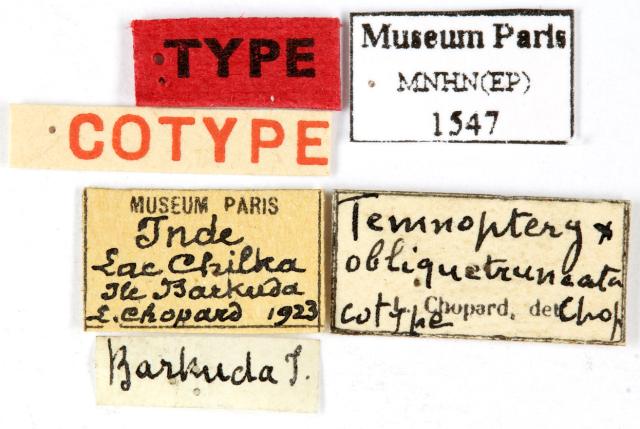 TYPE
Museum Paris
MNHN(EP)
1547
COTYPE
MUSEUM PARIS
Inde
Lac Chilka
Ile Barkuda
L. Chopard 1923
Temnopteryx
obliquetruncata
L. Chopard, det Chop
cotype
Barkuda I.